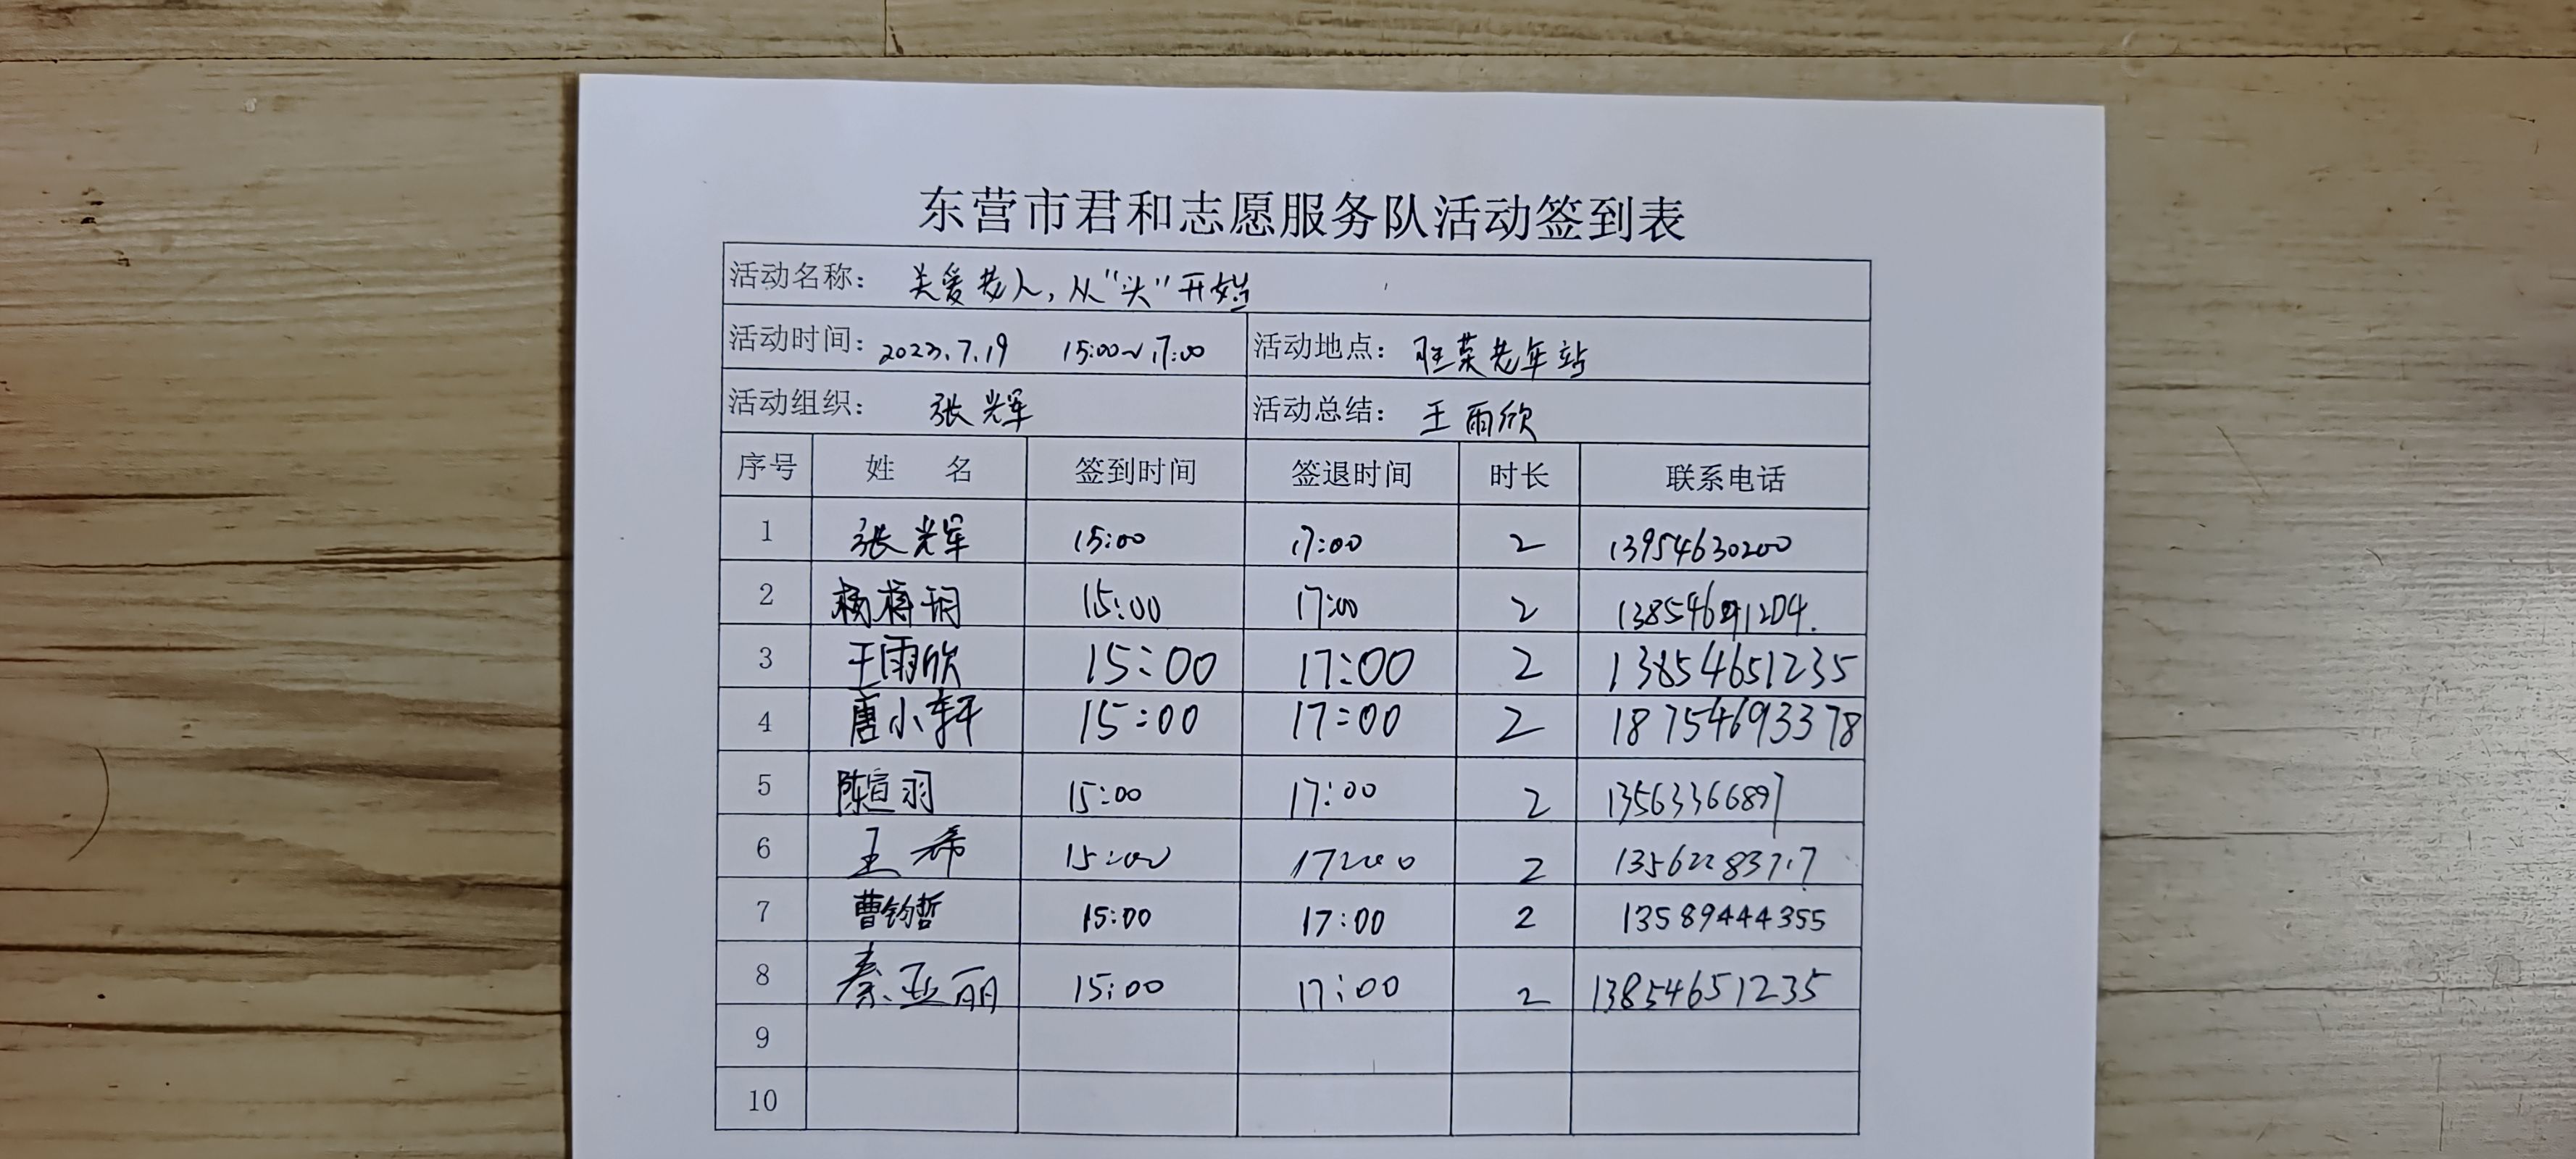 东营市君和志愿服务队活动签到表
活动名称： 关爱老人，从“头”开始
活动时间：2023.7.19 15:00~17:00 活动地点： 旺荣老年站
活动组织： 张辉 活动总结： 王雨欣
序号 姓 名 签到时间 签退时间 时长 联系电话
1 张辉 15:00 17:00 2 13954630200
2 杨 15:00 17:00 2
3 王雨欣 15:00 17:00 2 13854651235
4 唐小轩 15:00 17:00 2 18754693378
5 陈宣羽 15:00 17:00 2 13563366897
6 王希 15:00 17:00 2
7 曹钧哲 15:00 17:00 2 13589444355
8 秦亚丽 15:00 17:00 2 13854651235
9
10